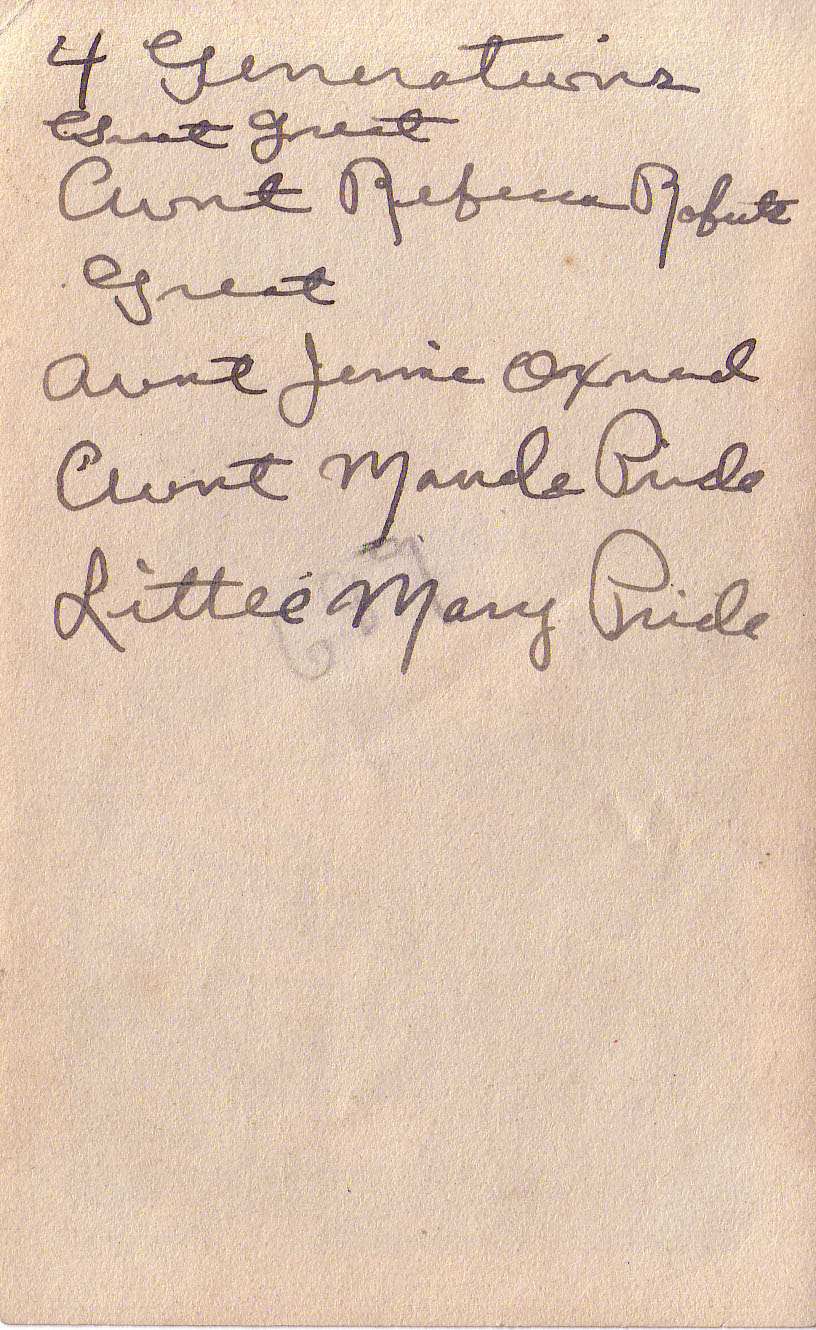 4 Generations
Great Great
Aunt Rebecca
Great
Aunt Jennie Oxnard
Aunt Maude Pride
Little Mary Pride